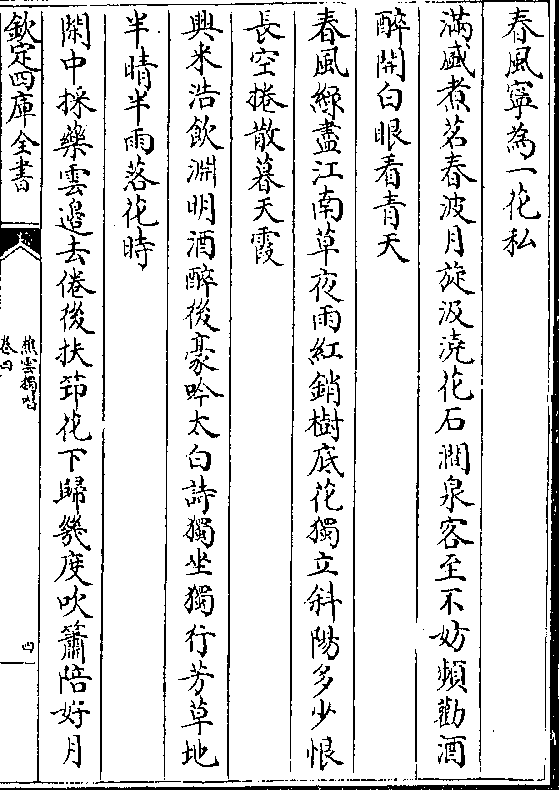 春風寧為一花私
滿盛煮茗春波月旋汲澆花石澗泉客至不妨頻勸酒
醉開白眼看青天
春風綠盡江南草夜雨紅銷樹底花獨立斜陽多少恨
長空捲散暮天霞
興來浩飲淵明酒醉後豪吟太白詩獨坐獨行芳草地
半晴半雨落花時
閑中採藥雲邉去倦後扶笻花下歸幾度吹簫陪好月
欽定四庫全書
樵雲獨唱
卷四
四